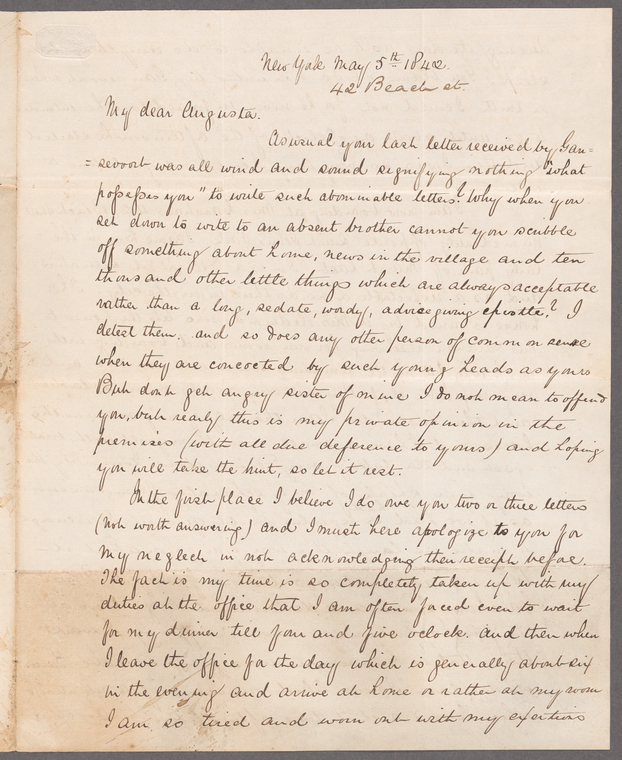 New York May 5th 1842.
42 Beach st.
My dear Augusta.
As usual your last letter received by Gan=
=sevoort was all wind and sound signifying nothing "what
possesses you" to write such abominable letters? Why when you
set down to write to an absent brother cannot you scribble
off something about home, news in the village and ten
thousand other little things which are always acceptable
rather than a long, sedate, wordy, advise giving epistle? I
detest them. and so does any other person of common sense
when they are concocted by such young heads as yours
But dont get angry sister of mine I do not mean to offend
you, but realy this is my private opinion in the
premises (with all due deference to yours) and hoping
you will take the hint, so let it rest.
In the first place I believe I do owe you two or three letters
(not worth answering) and I must here apologize to you for
my neglect in not acknowledging their receipt before.
The fact is my time is so completely taken up with my
duties at the office that I am often forced even to wait
for my dinner till four and five oclock. and then when
I leave the office for the day which is generally about six
in the evening and arrive at home or rather at my room
I am so tired and worn out with my exertions